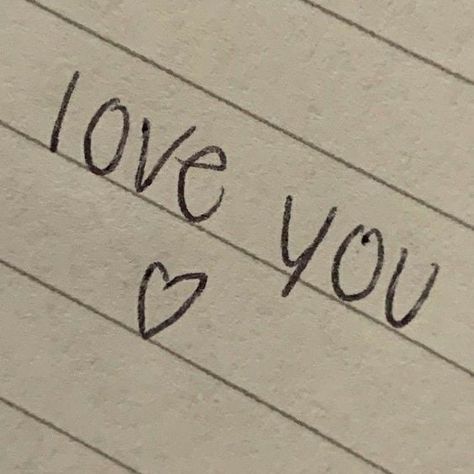 love you
♡